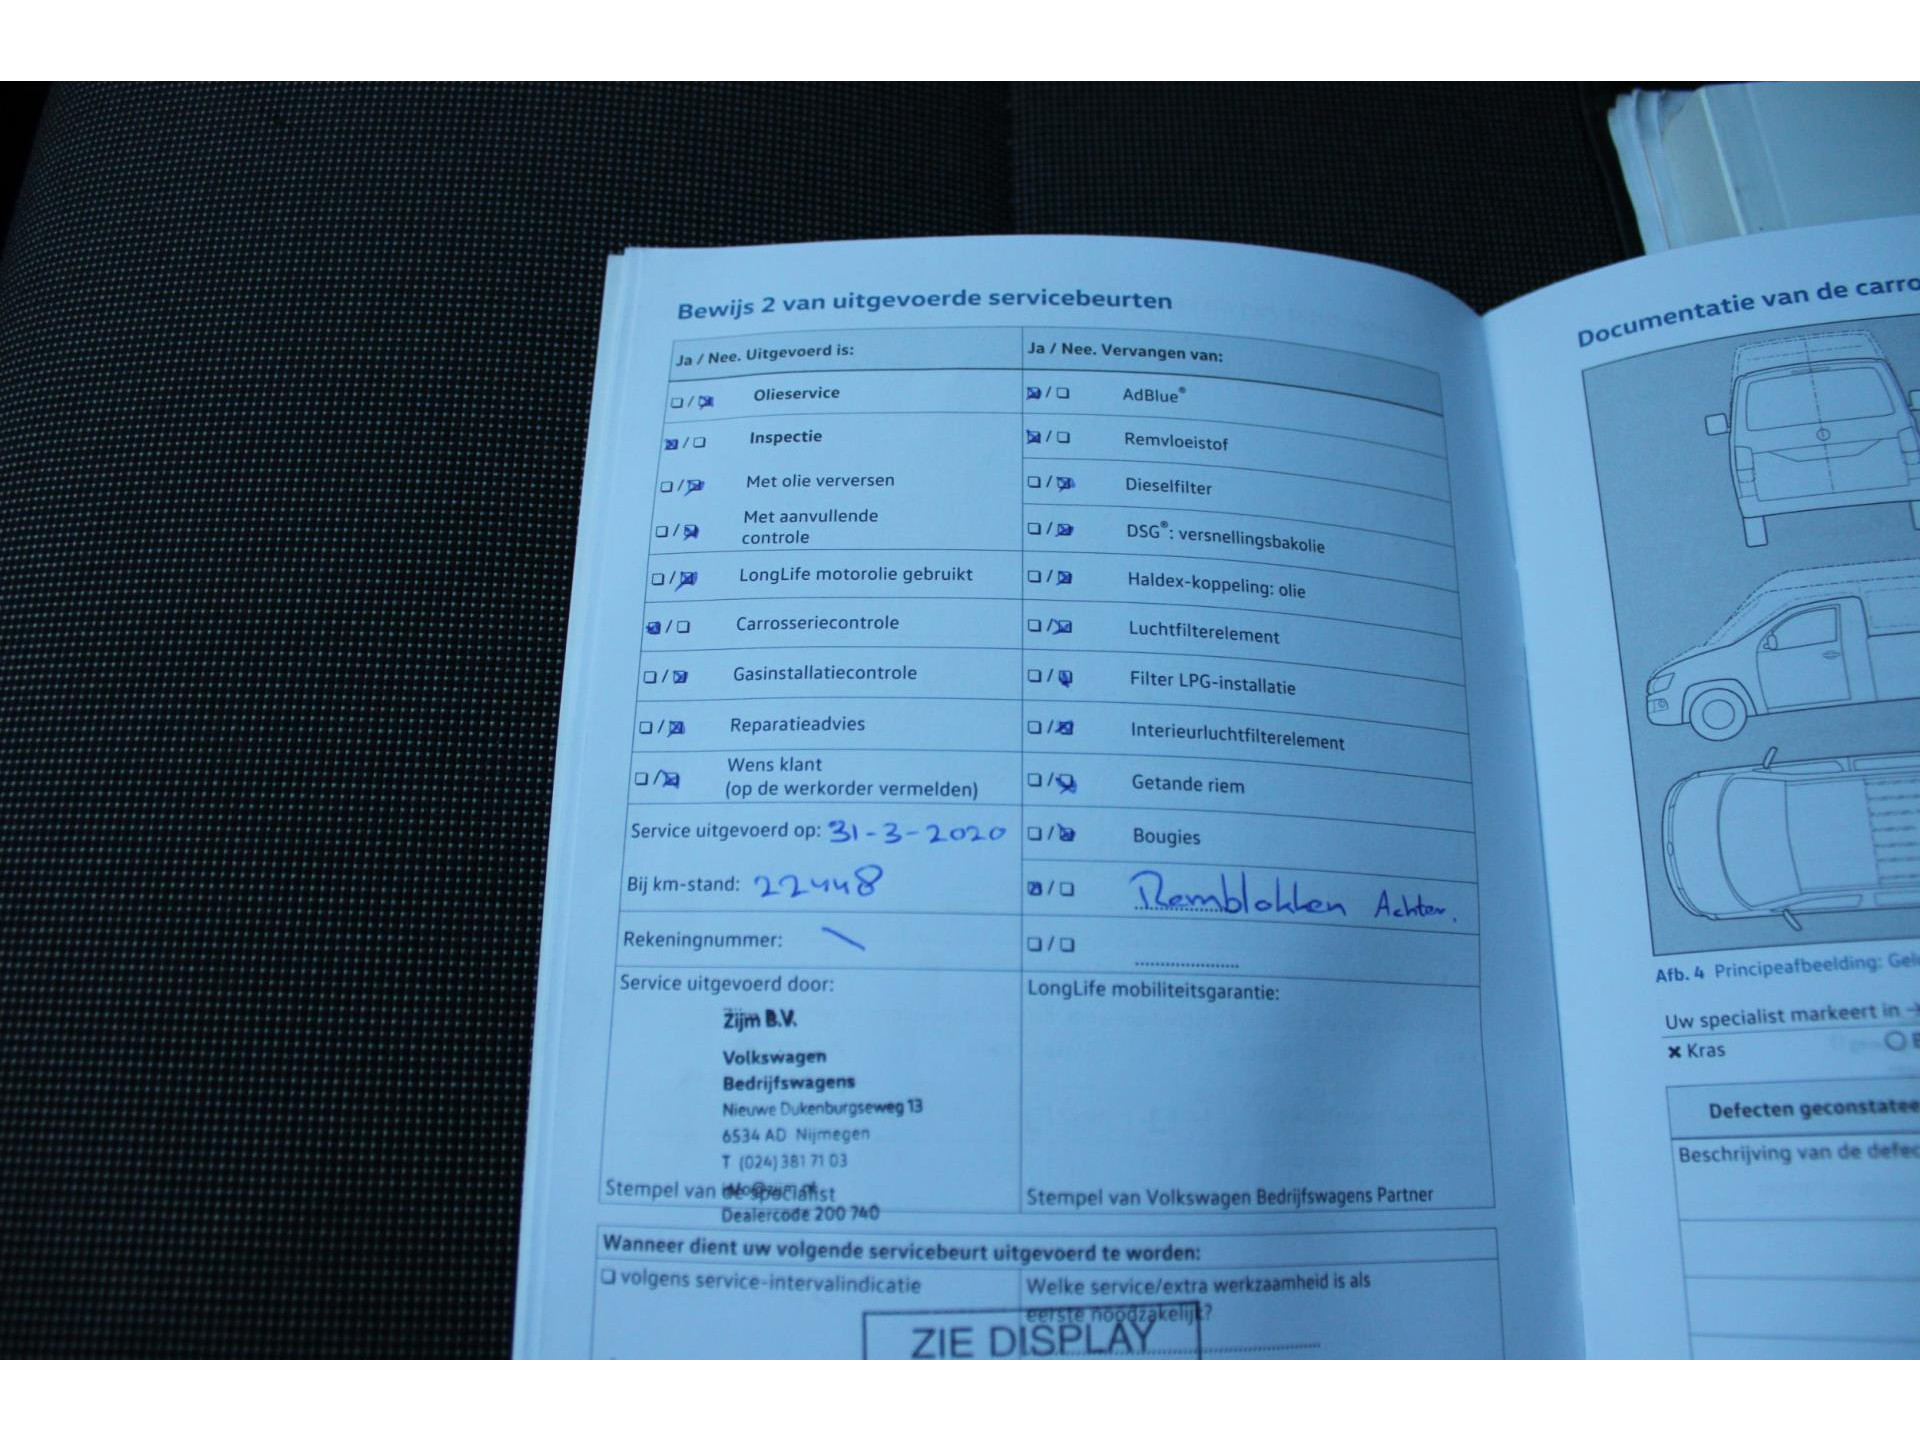 Bewijs 2 van uitgevoerde servicebeurten
Ja / Nee. Uitgevoerd is:
Olieservice
Inspectie
Met olie verversen
Met aanvullende
controle
LongLife motorolie gebruikt
Carrosseriecontrole
Gasinstallatiecontrole
Reparatieadvies
Wens klant
(op de werkorder vermelden)
Service uitgevoerd op: 31-3-2020
Bij km-stand: 22448
Rekeningnummer: \
Service uitgevoerd door:
Zijm B.V.
Volkswagen
Bedrijfswagens
Nieuwe Dukenburgseweg 13
6534 AD Nijmegen
T (024) 381 71 03
info@zijm.nl
Stempel van de specialist
Dealercode 200 740
Ja / Nee. Vervangen van:
AdBlue®
Remvloeistof
Dieselfilter
DSG®: versnellingsbakolie
Haldex-koppeling: olie
Luchtfilterelement
Filter LPG-installatie
Interieurluchtfilterelement
Getande riem
Bougies
Remblokken Achter.
LongLife mobiliteitsgarantie:
Stempel van Volkswagen Bedrijfswagens Partner
Wanneer dient uw volgende servicebeurt uitgevoerd te worden:
volgens service-intervalindicatie
Welke service/extra werkzaamheid is als
eerste noodzakelijk?
ZIE DISPLAY
Documentatie van de
Afb. 4 Principeafbeelding:
Uw specialist markeert in
Kras
Defecten
Beschrijving van de